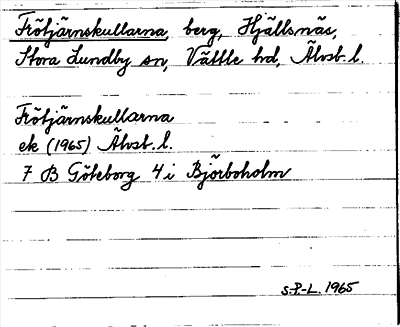 Frötjärnskullarna, berg, Hjällsnäs,
Stora Lundby sn, Vättle hd, Älvsb. l.
Frötjärnskullarna
ek (1965) Älvsb. l.
7 B Göteborg 4 i Björboholm
S.-P.-L. 1965